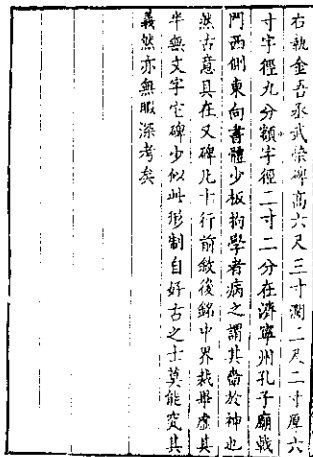 右執金吾丞武榮碑高六尺三寸濶二尺二寸厚六
寸字徑九分額字徑二寸二分在濟寧州孔子廟戟
門西側東向書體少板拘學者病之謂其嗇於神也
然古意具在又碑凡十行前敘後銘中界裁畢虛其
半無文字它碑少似此形制自好古之士莫能究其
義然亦無暇深考矣